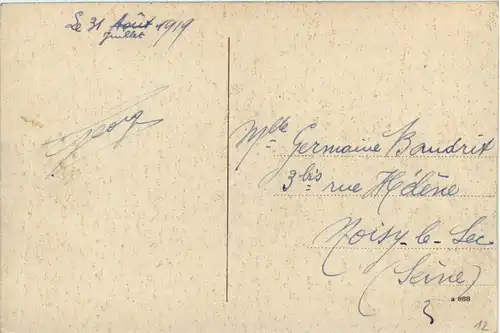 Le 31 Août 1919
Juillet
Georg
Mlle Germaine Baudrit
3 bis rue Hélène
Noisy-le-Sec
(Seine)
a 868
12